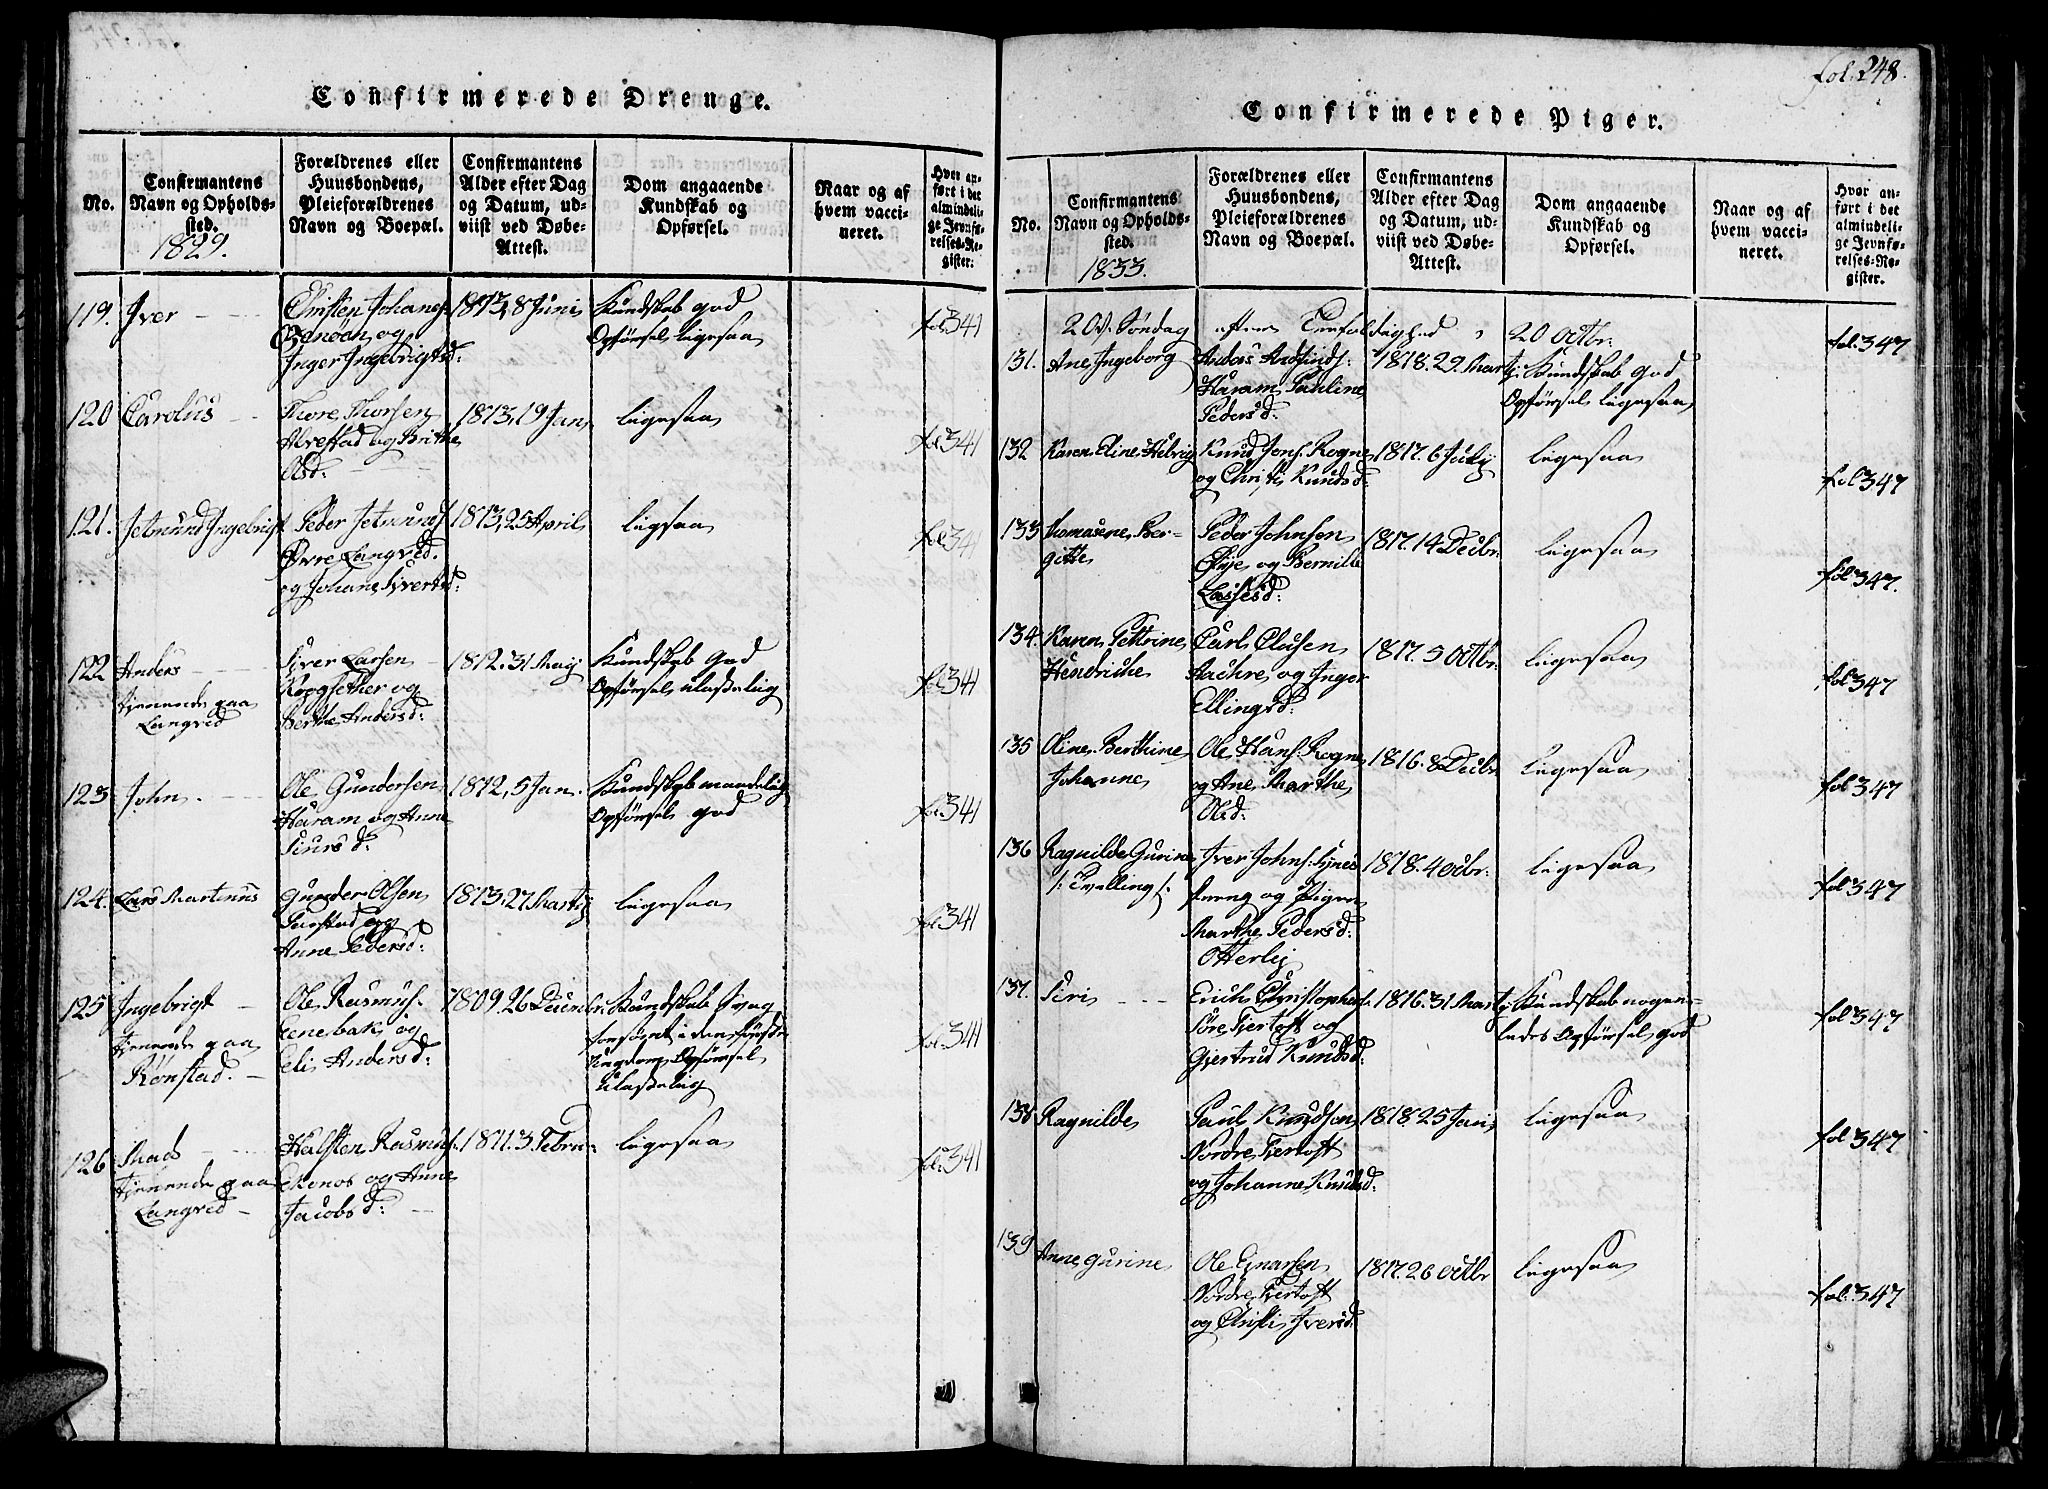 Confirmerede Drenge.
No.
Confirmantens
Navn og Opholds-
sted.
1829.
Forældrenes eller
Huusbondens,
Pleieforældrenes
Navn og Boepæl.
Confirmantens
Alder efter Dag
og Datum, ud-
viist ved Døbe-
Attest.
Dom angaaende
Kundskab og
Opførsel.
Naar og af
hvem vacci-
neret.
Hvor an-
ført i det
almindeli-
ge Jevnfø-
relses-Re-
gister.
119. Iver
Christen Johans
og
Inger Ingebrigtsd:
1813, 8 Juni
Kundskab god
Opførsel ligesaa
fol 341
120 Carolus
Thore Thorsen
Alvestad og Brithe
Olsd:
1813, 19 Jan
ligesaa
fol 341
121. Jetmund Ingebrigt
Peder Jetmunds
Øvre Langved
og Johane Sivertsd:
1813, 25 April
ligsaa
fol 341
122 Anders
tjenende paa
Langved
Siver Larsen
og
Berthe Andersd:
1812. 31 Maij
Kundskab God
Opførsel ulastelig
fol 341
123 John.
Ole Gundersen
Haram og Anne
Siursd:
1812, 5 Jan.
Kundskab maadelig
Opførsel god
fol 341
124. Lars Martinus
Gunder Olsen
og
Anne Pedersd:
1813, 27 Martij
ligesaa
fol 341
125 Ingebrigt
tjenende paa
Rønstad.
Ole Rasmus.
Lenebak og
Eli Andersd:
1809. 26 Decembr.
Kundskab svag
forsømt i den første
Ungdom Opførsel
Ulastelig
fol. 341
126 Mads
tjenende paa
Langved
Halsten Rasmus.
Ekonos og Anne
Jacobsd:
1811. 3 Febru:
ligesaa
fol. 341
fol. 248.
Confirmerede Piger.
No.
Confirmantens
Navn og Opholds-
sted.
1833.
Forældrenes eller
Huusbondens,
Pleieforældrenes
Navn og Boepæl.
Confirmantens
Alder efter Dag
og Datum, ud-
viist ved Døbe-
Attest.
Dom angaaende
Kundskab og
Opførsel.
Naar og af
hvem vacci-
neret.
Hvor an-
ført i det
almindeli-
ge Jevnfø-
relses-Re-
gister.
20de Søndag efter Trefoldighed 20 Octbr:
131. Ane Ingeborg
Anders
Haram Pauline
Pedersd:
1818. 29 Martj
Kundskab god
Opførsel ligesaa
fol. 347
132 Karen Eline Helvig
Knud Jons. Rogne
og Christi Knudsd:
1817. 6 Julij
ligesaa
fol 347
133 Thomasene Ber-
gitte
Peder Johnsen
og Pernille
Lassesd:
1817. 14 Decbr.
ligesaa
fol 347.
134. Karen Pettrine
Hendrikke
Carl Clausen
Aachre og Inger
Ellingsd:
1817. 5 Octbr.
ligesaa
fol 347
135 Oline Berthine
Johanne
Ole Hans. Rogne
og Ane Marthe
Olsd:
1816. 8 Decbr.
ligesaa
fol 347
136 Ragnilde Gurine
/: Tvilling :/
Iver Johns. Synes
dreng og Pigen
Marthe Pedersd:
Otterlej
1818. 4 Octbr:
ligesaa
fol 347
137. Siri
Erich Christophers.
Søre Fjertoft og
Gjertrud Knudsd:
1816. 31 Martj
Kundskab nogen-
ledes Opførsel god
fol 347
138 Ragnilde
Paul Knudson
Nordre Fjertoft
og Johanne Knudsd:
1818. 25 Jan.
ligesaa
fol 347
139 Anne Gurine
Ole Gunarsen
Nordre Fjertoft
og Christi Iversd
1817. 26 Octbr
ligesaa
fol. 347